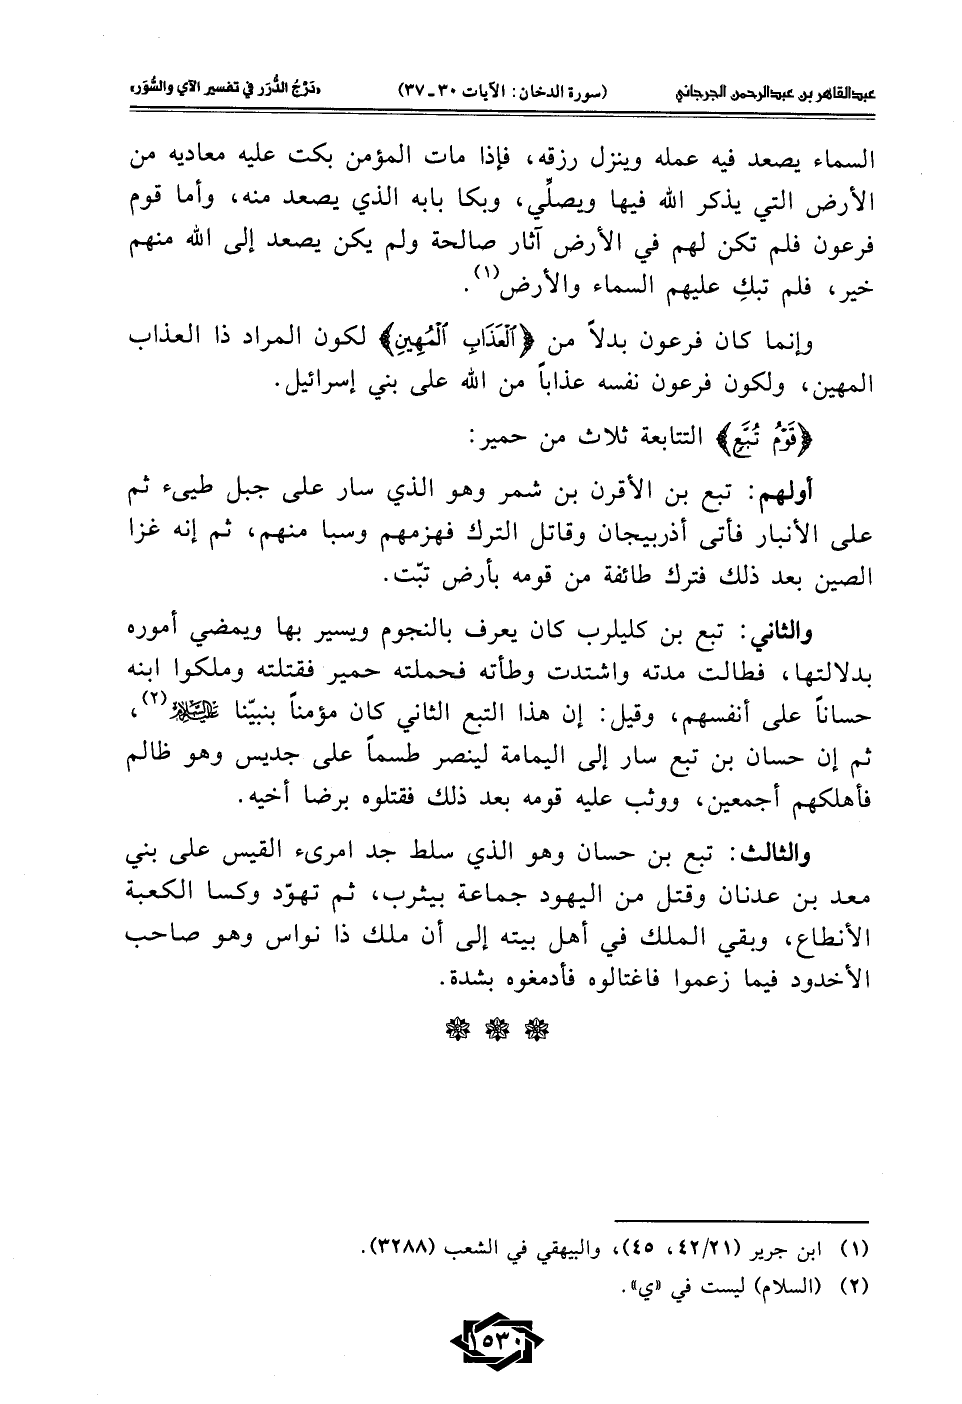 عبدالقاهر بن عبدالرحمن الجرجاني (سورة الدخان: الآيات ٣٠ ـ ٣٧) «دَرْجُ الدُّرَر في تفسير الآي والسُّوَر»
السماء يصعد فيه عمله وينزل رزقه، فإذا مات المؤمن بكت عليه معاديه من
الأرض التي يذكر الله فيها ويصلّي، وبكا بابه الذي يصعد منه، وأما قوم
فرعون فلم تكن لهم في الأرض آثار صالحة ولم يكن يصعد إلى الله منهم
خير، فلم تبكِ عليهم السماء والأرض(١).
وإنما كان فرعون بدلاً من ﴿ٱلْعَذَابِ ٱلْمُهِينِ﴾ لكون المراد ذا العذاب
المهين، ولكون فرعون نفسه عذاباً من الله على بني إسرائيل.
﴿قَوْمُ تُبَّعٍ﴾ التتابعة ثلاث من حمير:
أولهم: تبع بن الأقرن بن شمر وهو الذي سار على جبل طيىء ثم
على الأنبار فأتى أذربيجان وقاتل الترك فهزمهم وسبا منهم، ثم إنه غزا
الصين بعد ذلك فترك طائفة من قومه بأرض تبّت.
والثاني: تبع بن كليلرب كان يعرف بالنجوم ويسير بها ويمضي أموره
بدلالتها، فطالت مدته واشتدت وطأته فحملته حمير فقتلته وملكوا ابنه
حساناً على أنفسهم، وقيل: إن هذا التبع الثاني كان مؤمناً بنبيّنا عليه السلام(٢)،
ثم إن حسان بن تبع سار إلى اليمامة لينصر طسماً على جديس وهو ظالم
فأهلكهم أجمعين، ووثب عليه قومه بعد ذلك فقتلوه برضا أخيه.
والثالث: تبع بن حسان وهو الذي سلط جد امرىء القيس على بني
معد بن عدنان وقتل من اليهود جماعة بيثرب، ثم تهوّد وكسا الكعبة
الأنطاع، وبقي الملك في أهل بيته إلى أن ملك ذا نواس وهو صاحب
الأخدود فيما زعموا فاغتالوه فأدمغوه بشدة.
(١) ابن جرير (٤٢/٢١، ٤٥)، والبيهقي في الشعب (٣٢٨٨).
(٢) (السلام) ليست في «ي».
١٥٣٠